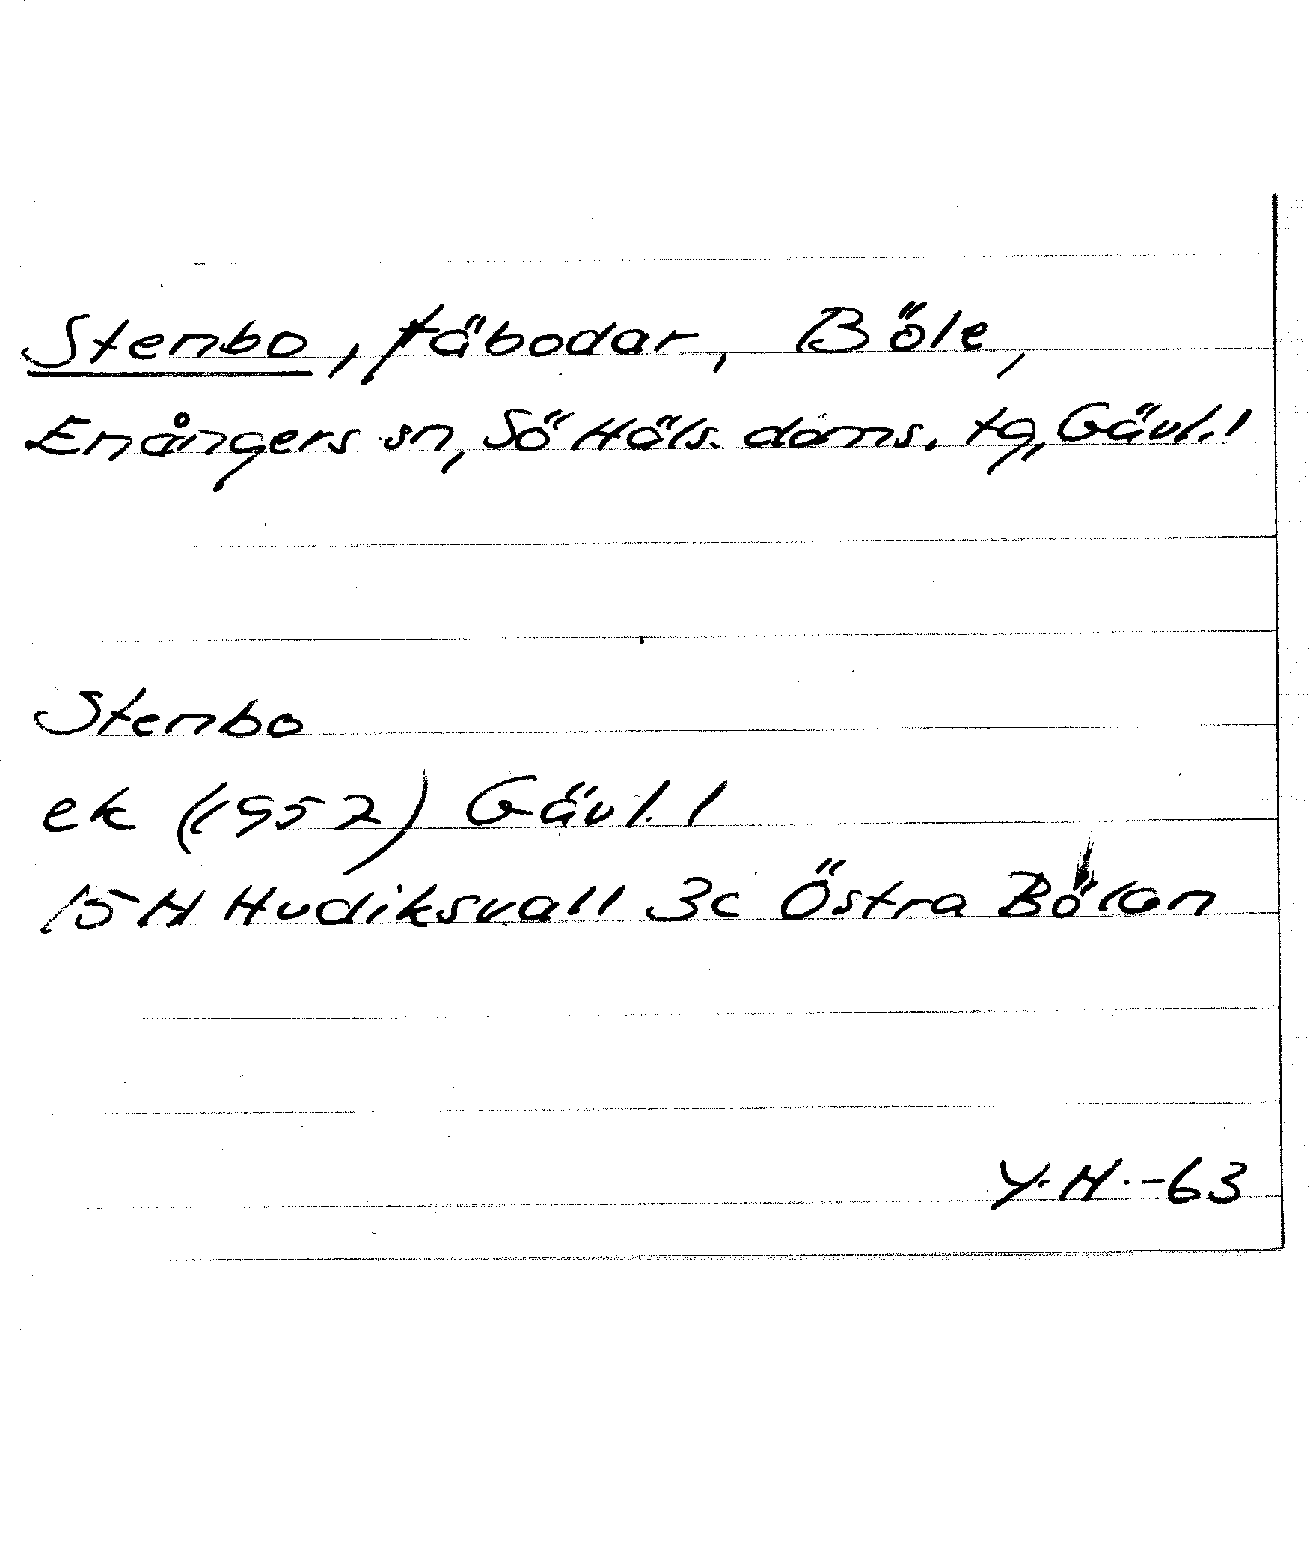 Stenbo, fäbodar, Böle,
Enångers sn, Sö Häls. doms. tg, Gävl. l
Stenbo
ek (1952) Gävl. l
15 H Hudiksvall 3c Östra Bölan
Y.H.-63